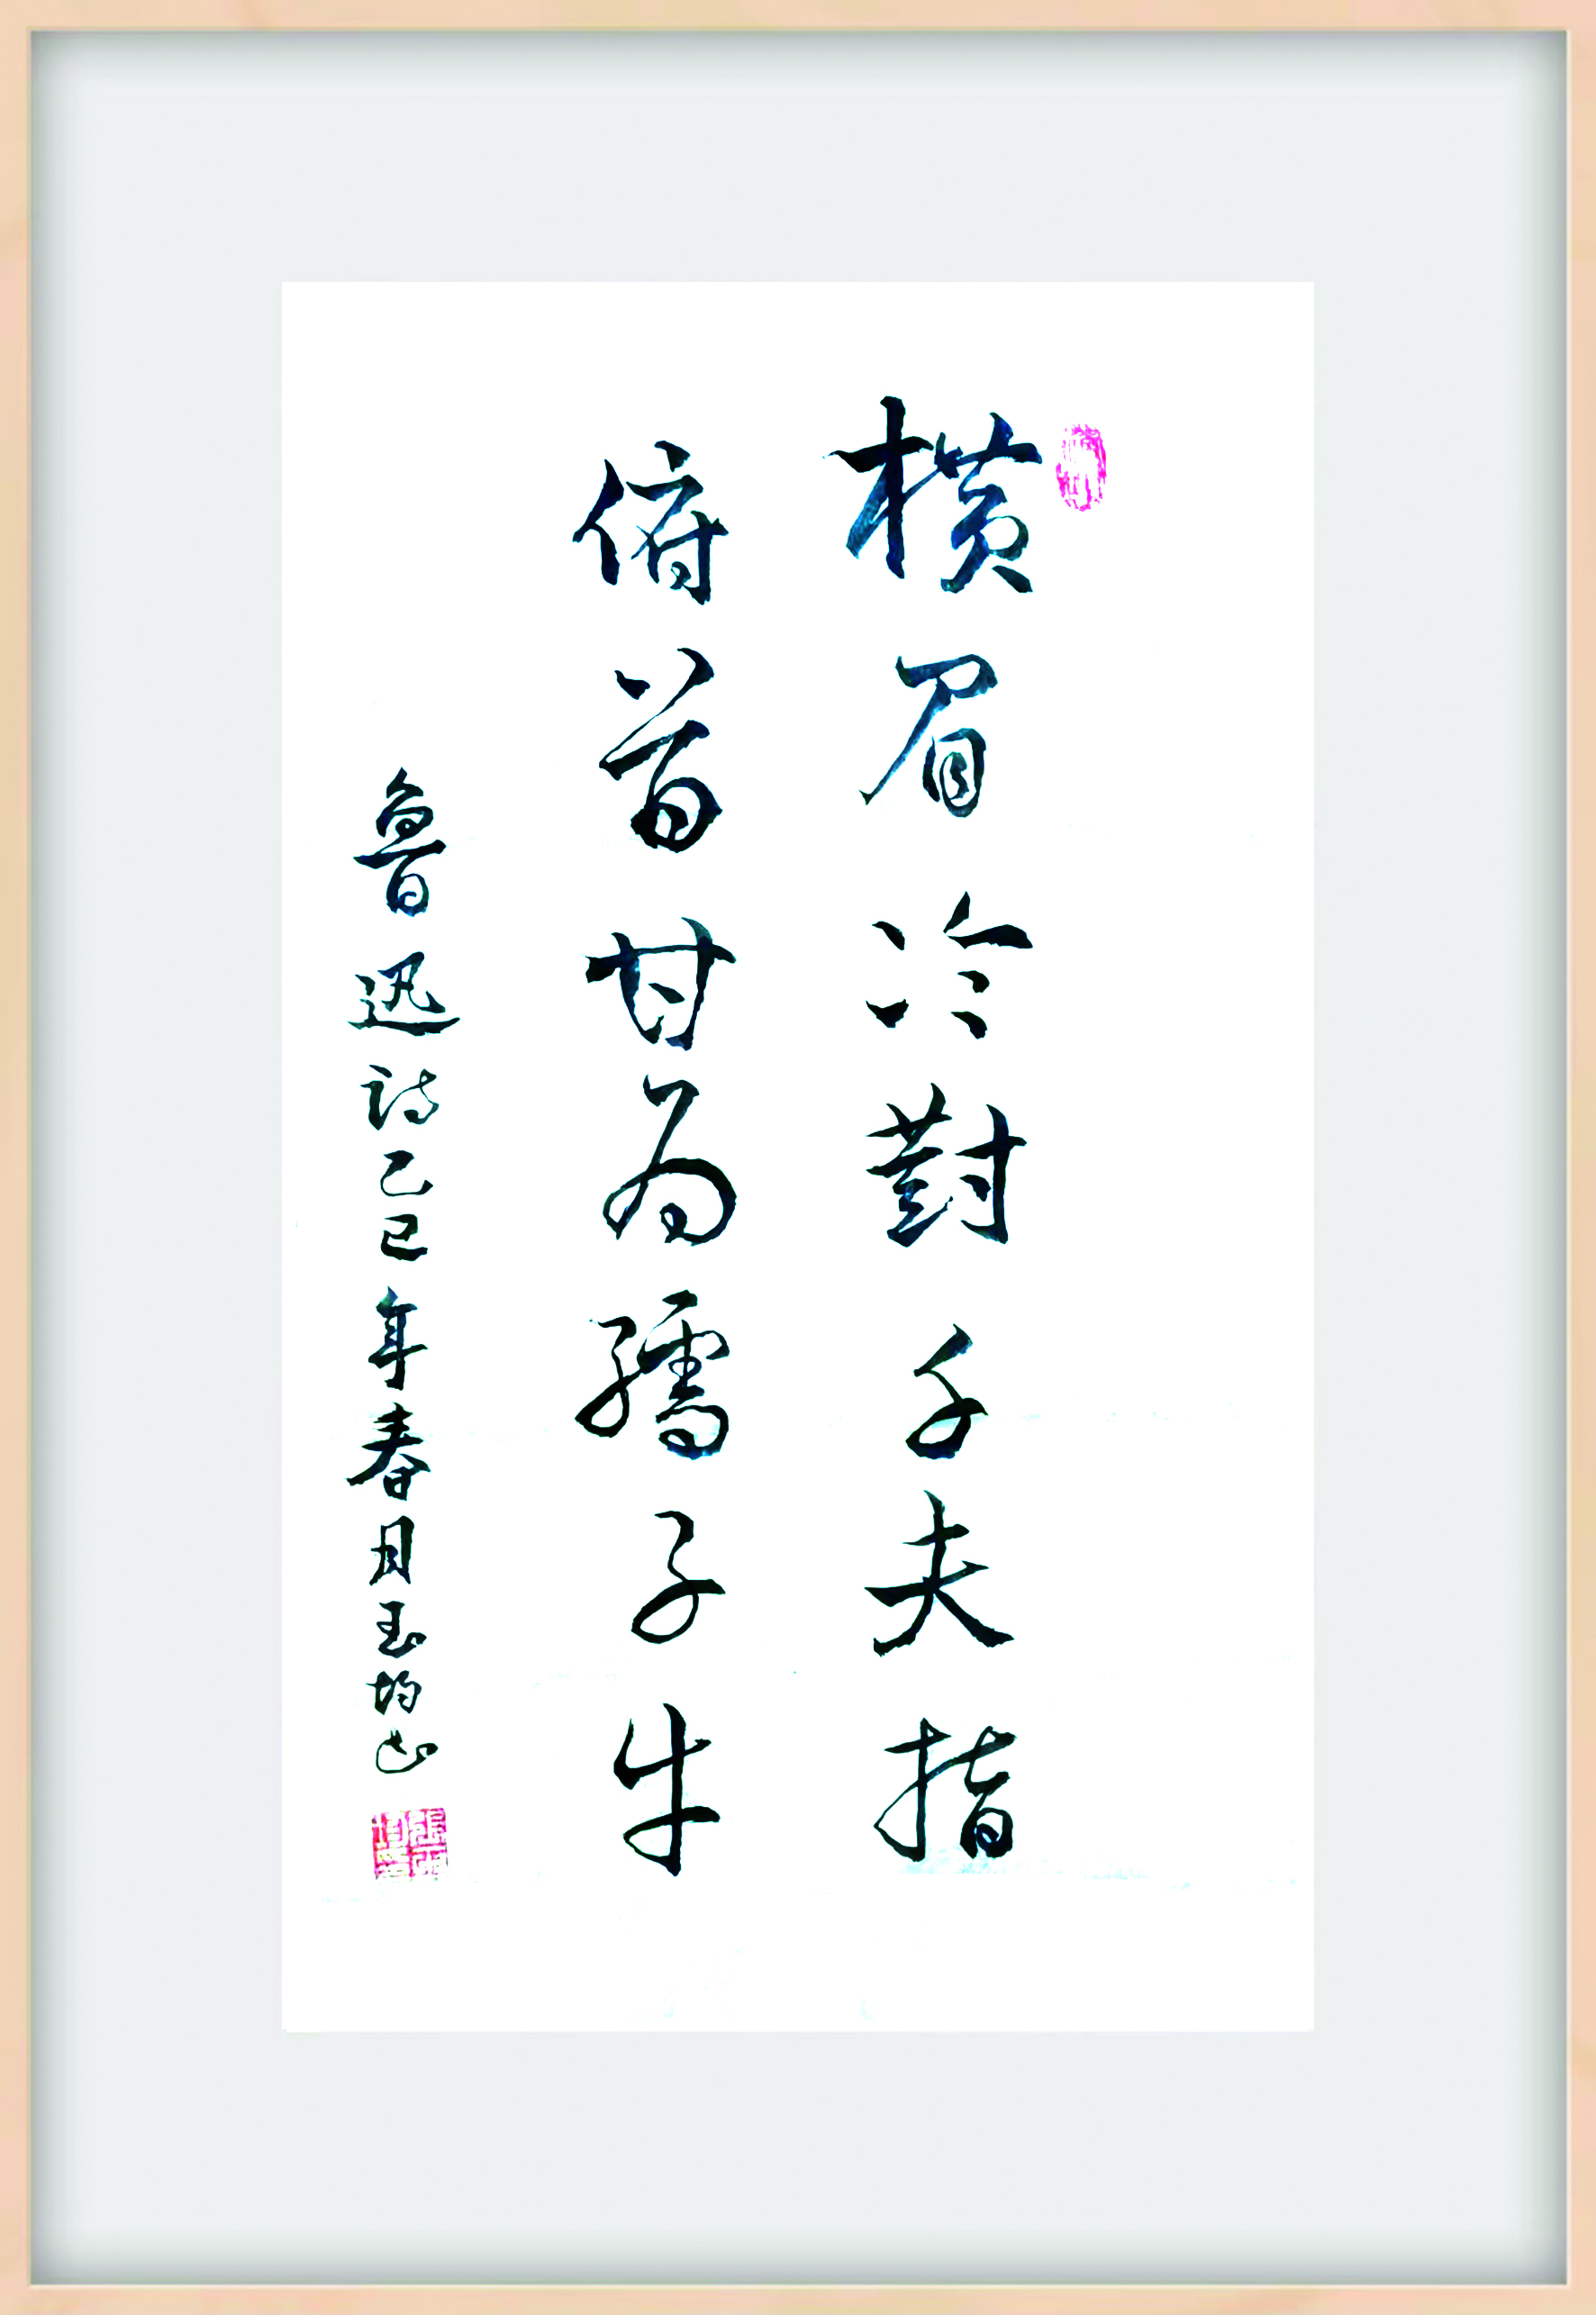 橫眉冷對千夫指
俯首甘為孺子牛
魯迅詩乙巳年春月玉均書